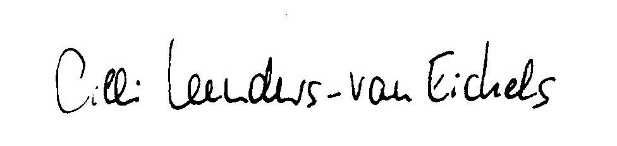 Cilli Leenders-van Eickels